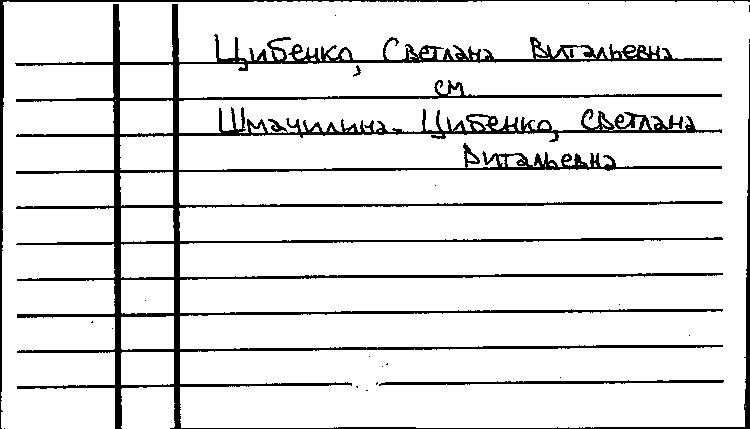 Цибенко, Светлана Витальевна
см.
Шмачилина-Цибенко, Светлана
Витальевна